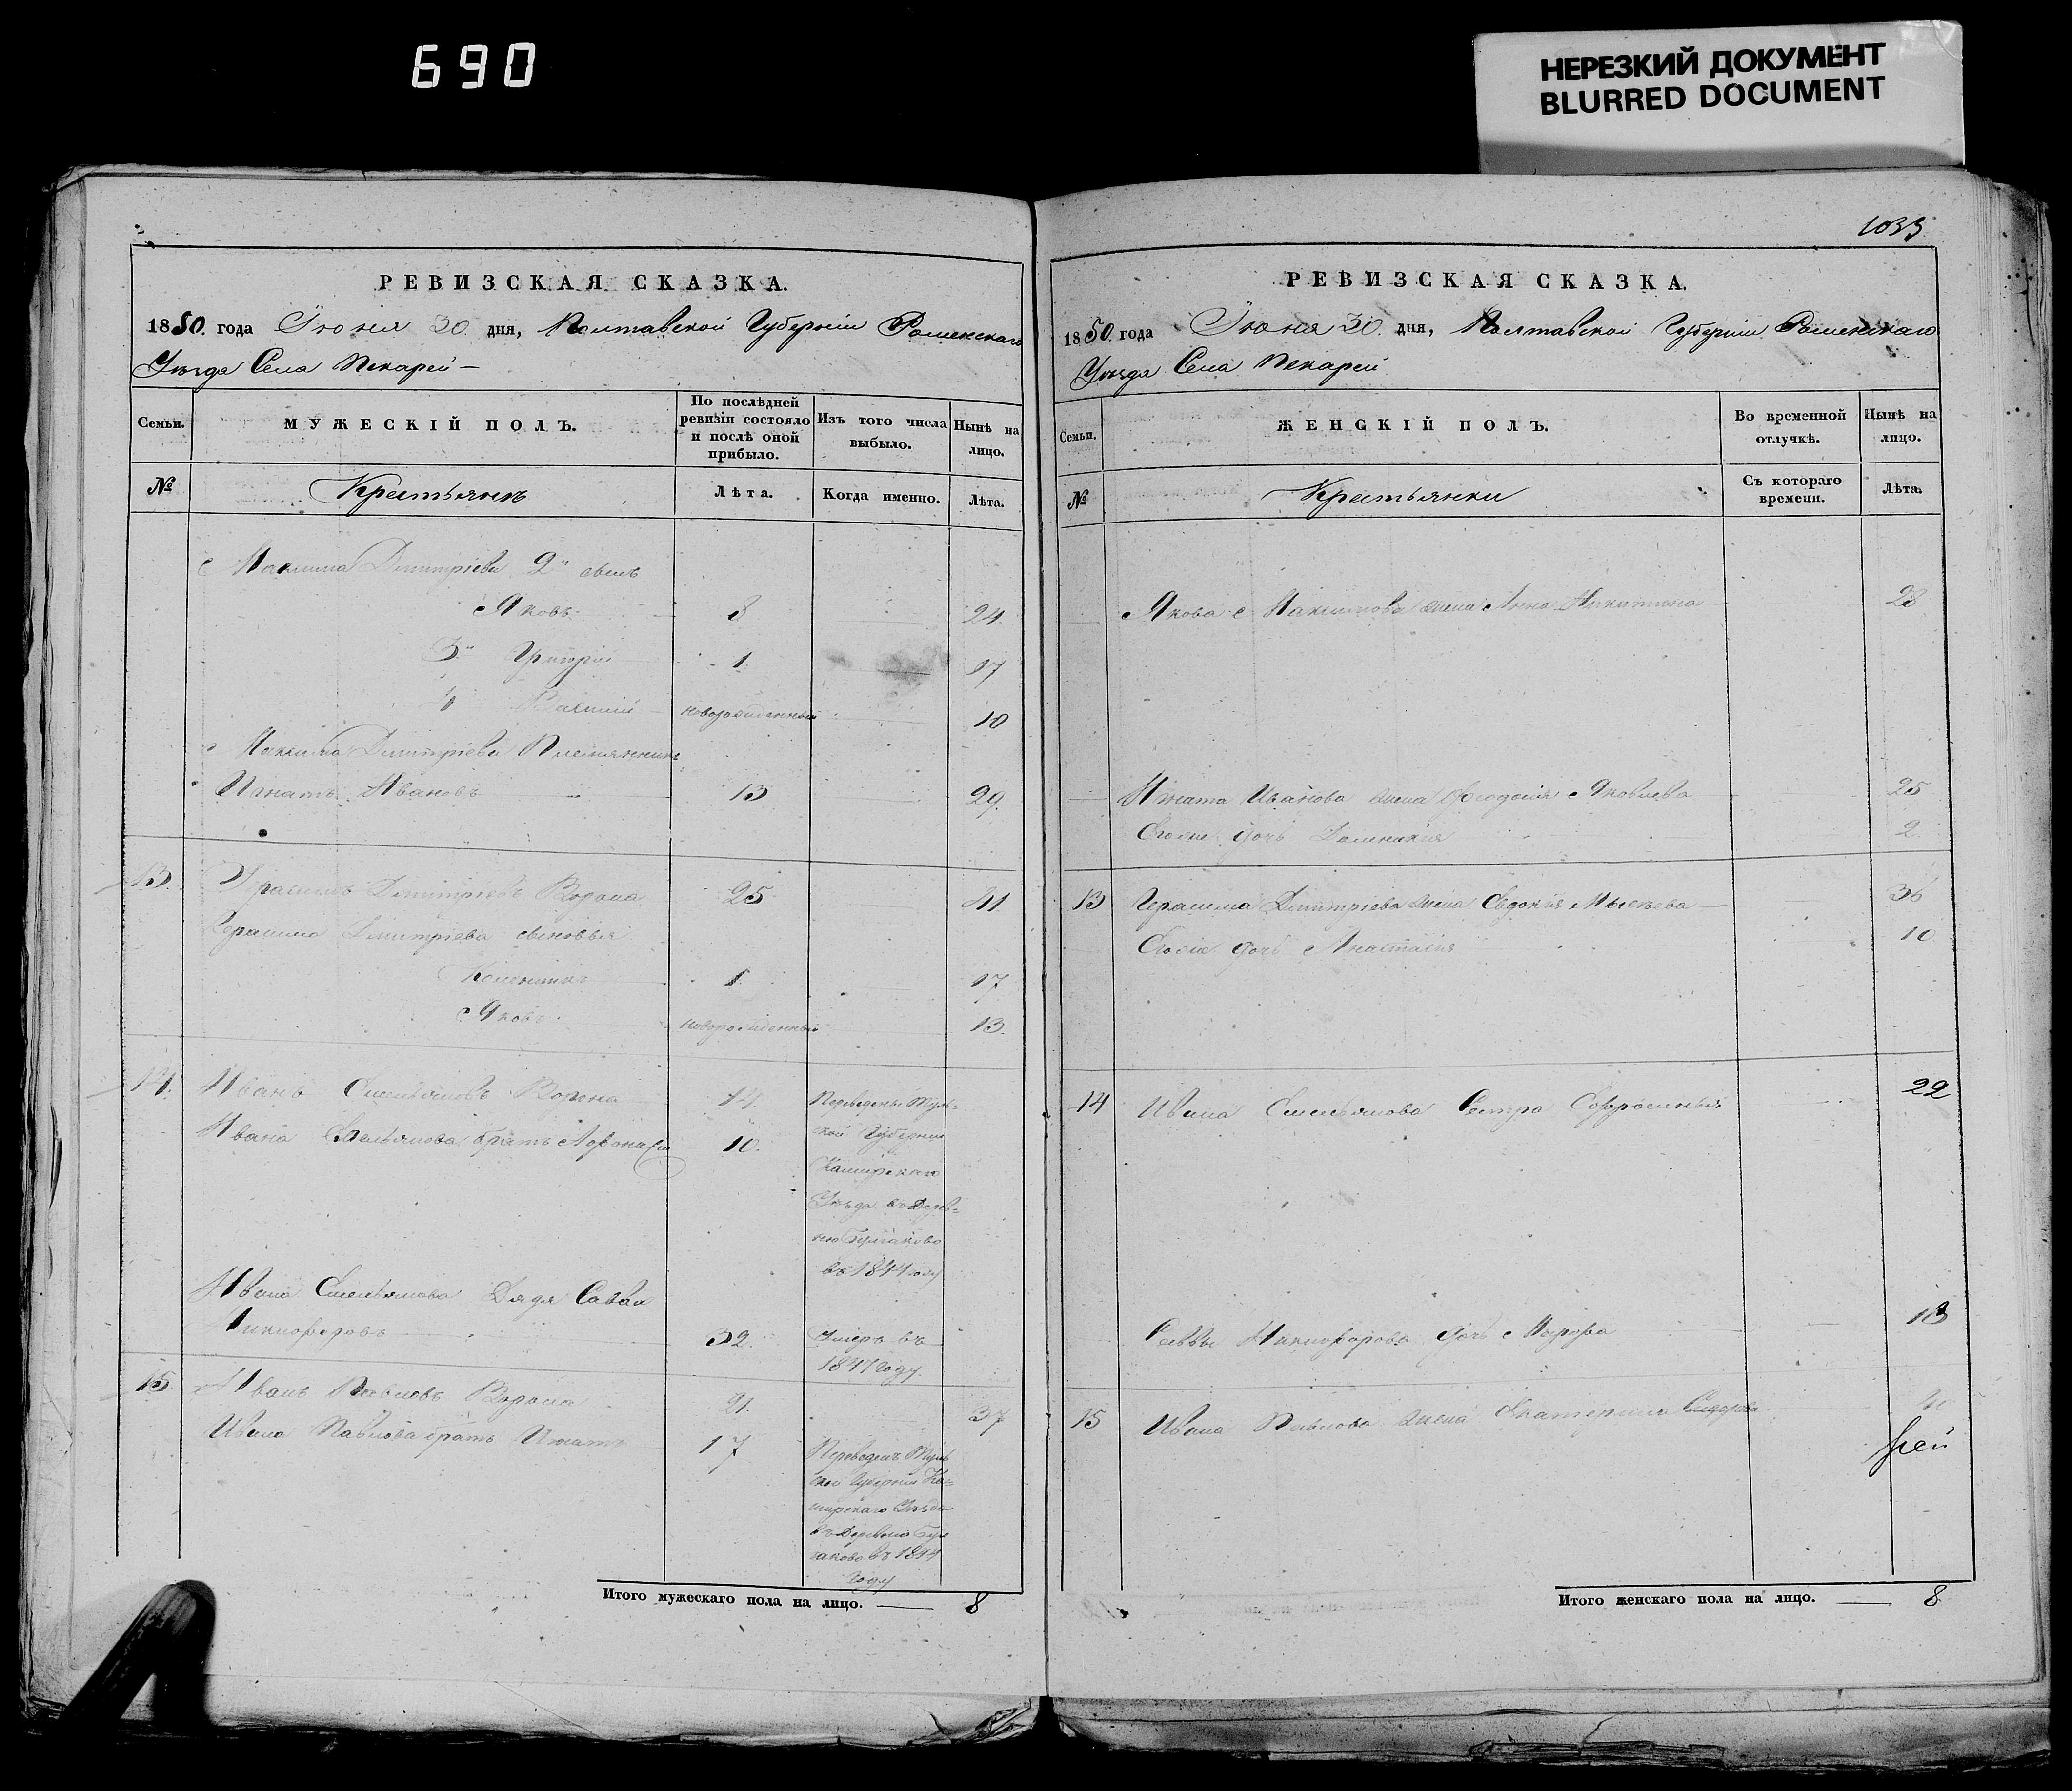 690
НЕРЕЗКИЙ ДОКУМЕНТ
BLURRED DOCUMENT
РЕВИЗСКАЯ СКАЗКА.
1850 года Іюня 30 дня, Полтавской Губерніи Роменскаго
Уѣзда Села Пекарей —
Семьи.
МУЖЕСКІЙ ПОЛЪ.
По послѣдней
ревизіи состояло
и послѣ оной
прибыло.
Изъ того числа
выбыло.
Нынѣ на
лицо.
№
Крестьянъ
Лѣта.
Когда именно.
Лѣта.
Максима Дмитріева 2й сынъ
Яковъ 8 24
3й Григорій 1 17
4 новорожденный 10
Максима Дмитріева Племянникъ
Игнатъ Ивановъ 13 29
13 Герасимъ Дмитріевъ Ворона 25 41
Герасима Дмитріева сыновья
1 17
Яковъ новорожденный 13
14. Иванъ Емельяновъ Ворона 14 Переведены Туль-
Ивана Емельянова братъ Афонасій 10. ской Губерніи
Каширскаго
Уѣзда въ Дерев-
ню Булгаково
въ 1844 году
Ивана Емельянова Дядя Савва
Никифоровъ 32. Умеръ въ
1847 году.
15 Иванъ Павловъ Ворона 21. 37
Ивана Павлова братъ Игнатъ 17 Переведенъ Туль
ской Губерніи Ка-
ширскаго Уѣзда
въ Деревню Бул
гаково въ 1844
году
Итого мужескаго пола на лицо. — 8
1033
РЕВИЗСКАЯ СКАЗКА.
1850 года Іюня 30 дня, Полтавской Губерніи Роменскаго
Уѣзда Села Пекарей
Семьи.
ЖЕНСКІЙ ПОЛЪ.
Во временной
отлучкѣ.
Нынѣ на
лицо.
№
Крестьянки
Съ котораго
времени.
Лѣта.
Якова Максимова жена Анна Никитина 28
Игната Иванова жена Феодосія Яковлева 25
Егоже дочь Доминикія 2
13 Герасима Дмитріева жена Евдокія Мысѣева 36
Егоже дочь Анастасія 10
14 Ивана Емельянова Сестра Софроинья 22
Саввы Никифорова дочь 13
15 Ивана Павлова жена Екатерина Сидорова 40
Итого женскаго пола на лицо. — 8